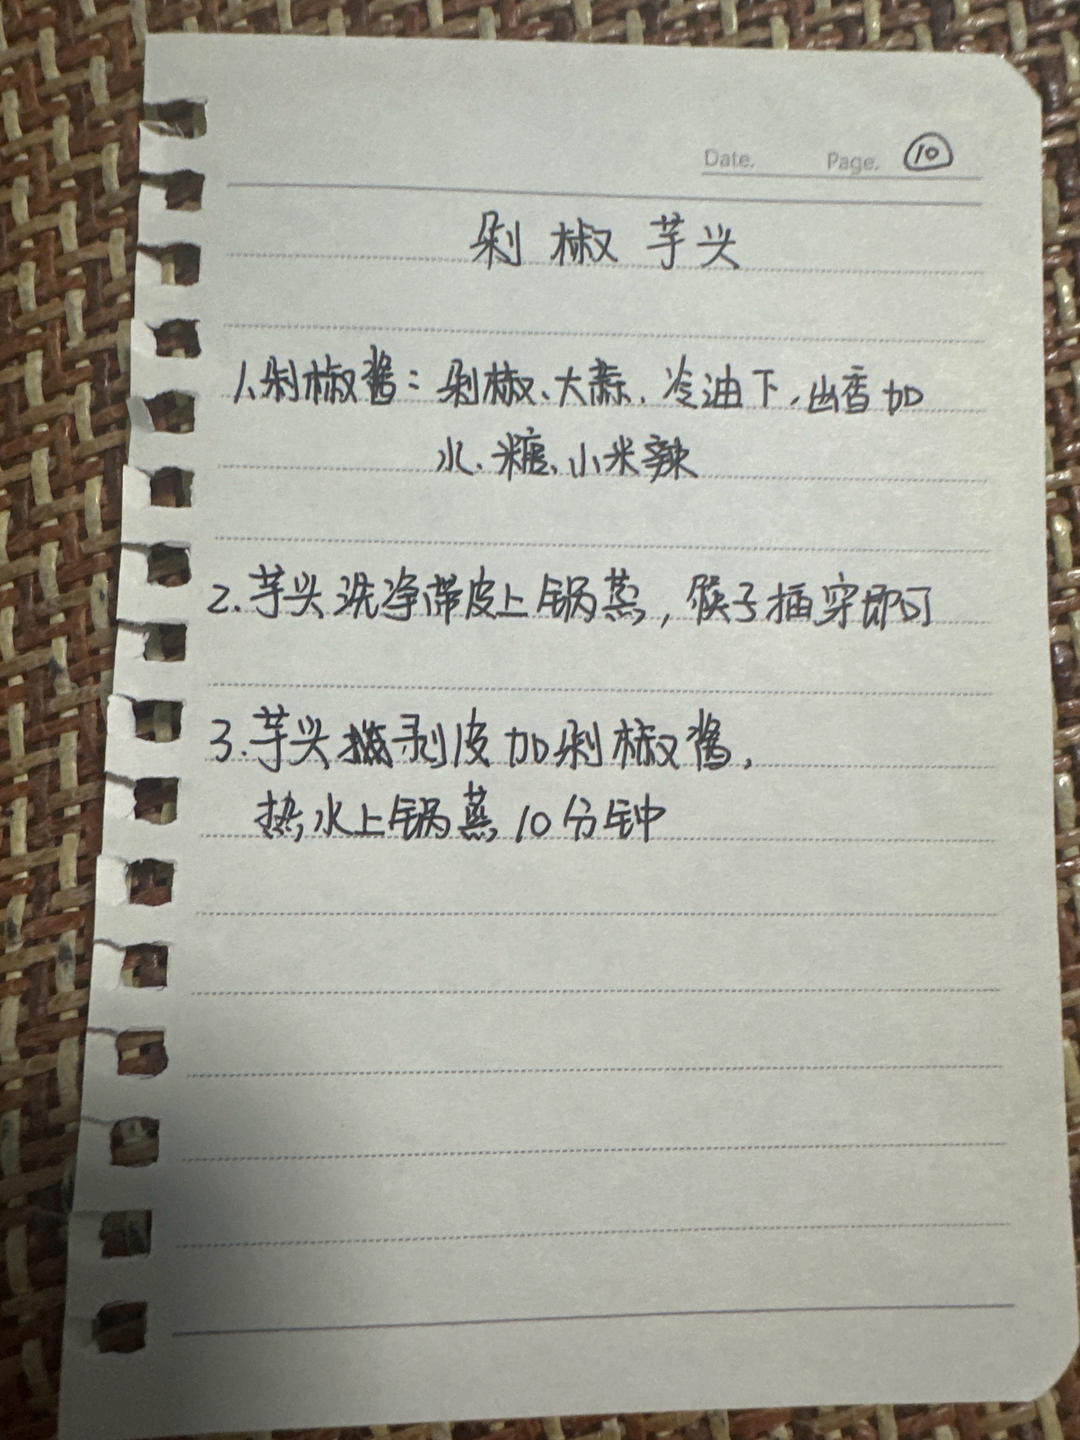 Date. Page. 10
剁椒芋头
1.剁椒酱：剁椒、大蒜、冷油下，出香加
水、糖、小米辣
2.芋头洗净带皮上锅蒸，筷子插穿即可
3.芋头剥皮加剁椒酱，
热水上锅蒸10分钟